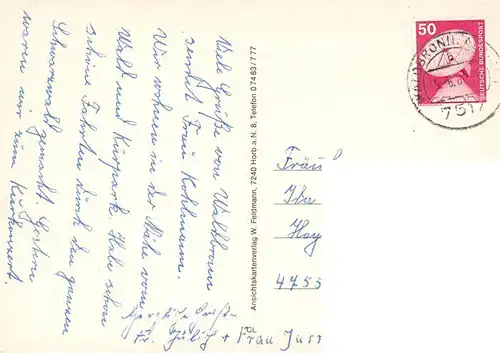 Viele Grüße von Waldbronn
sendet Frau Kohlmann.
Wir wohnen in der Nähe vom
Wald und Kurpark. Habe schon
schöne Fahrten durch den ganzen
Schwarzwald gemacht. Gestern
waren wir zum Kurkonzert.
Herzliche Grüße
Fr. Jülich + Frau
Ansichtskartenverlag W. Feldmann, 7240 Horb a.N. 8, Telefon 07483/777
50
DEUTSCHE BUNDESPOST
WALDBRONN
7517
Fräu
Ida
Hay
4755